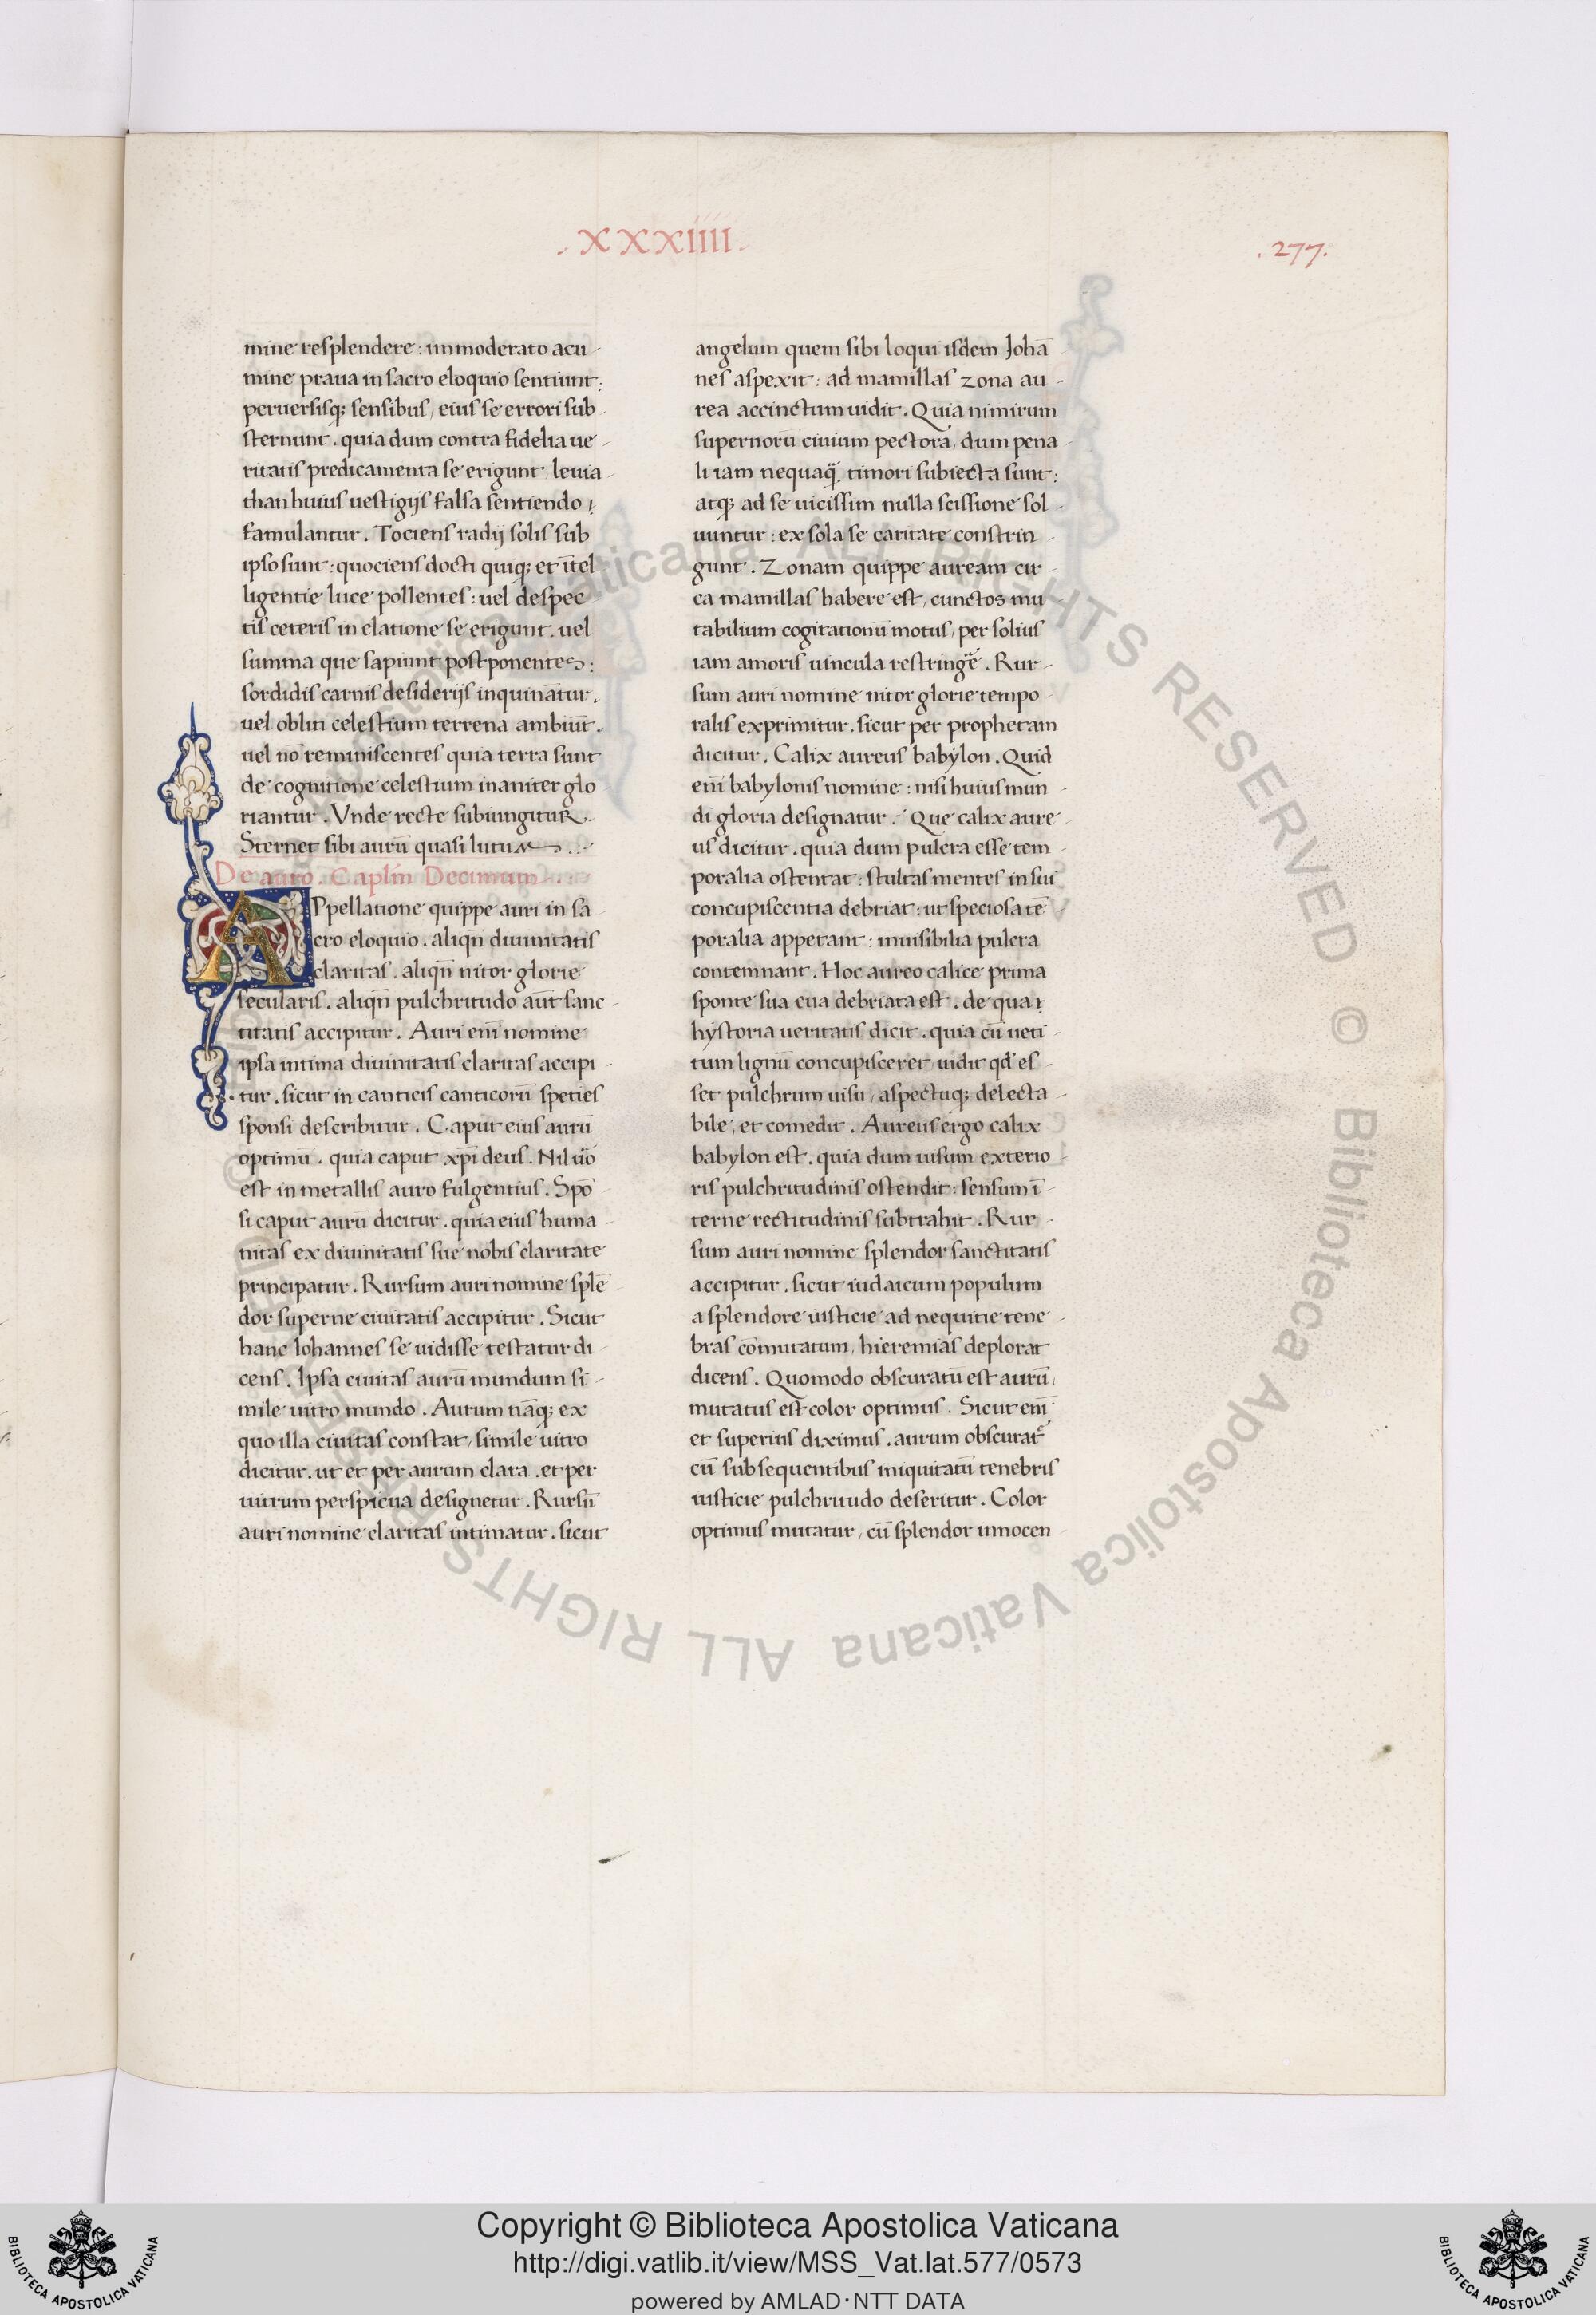 .XXXIIII.
.277.
mine resplendere : immoderato acu-
mine praua in sacro eloquio sentiunt:
peruersisq; sensibus, eius se errori sub-
sternunt. quia dum contra fidelia ue-
ritatis predicamenta se erigunt, leuia-
than huius uestigijs falsa sentiendo
famulantur. Tociens radij solis sub
ipso sunt: quociens docti quiq; et ītel
ligentie luce pollentes: uel despec-
tis ceteris in elatione se erigunt. uel
summa que sapiunt postponentes:
sordidis carnis desiderijs inquinātur.
uel obliti celestium terrena ambiūt.
uel nō reminiscentes quia terra sunt
de cognitione celestium inaniter glo
riantur. Vnde recte subiungitur.
Sternet sibi aurū quasi lutum
De auro. Caplm̄ Decimum
APpellatione quippe auri in sa
cro eloquio. aliqn̄ diuinitatis
claritas. aliqn̄ nitor glorie
secularis. aliqn̄ pulchritudo aūt sanc-
titatis accipitur. Auri eni̅ nomine
ipsa intima diuinitatis claritas accipi-
tur. sicut in canticis canticorū speties
sponsi describitur. Caput eius aurū
optimū. quia caput xp̄i deus. Nil uō
est in metallis auro fulgentius. Spō-
si caput aurū dicitur. quia eius huma-
nitas ex diuinitatis sue nobis claritate
principatur. Rursum auri nomine splē
dor superne ciuitatis accipitur. Sicut
hanc Iohannes se uidisse testatur di-
cens. Ipsa ciuitas aurū mundum si-
mile uitro mundo. Aurum nāq; ex
quo illa ciuitas constat, simile uitro
dicitur. ut et per aurum clara. et per
uitrum perspicua designetur. Rursū
auri nomine claritas intimatur. sicut
angelum quem sibi loqui isdem Johā
nes aspexit: ad mamillas zona au-
rea accinctum uidit. Quia nimirum
supernorū ciuium pectora, dum pena-
li iam nequaq̄ timori subiecta sunt:
atq; ad se uicissim nulla scissione sol-
uuntur: ex sola se caritate constrin-
gunt. Zonam quippe auream cir-
ca mamillas habere est, cunctos mu-
tabilium cogitationū motus, per solius
iam amoris uincula restringe̅. Rur-
sum auri nomine nitor glorie tempo-
ralis exprimitur. sicut per prophetam
dicitur. Calix aureus babylon. Quid
eni̅ babylonis nomine: nisi huius mun-
di gloria designatur. Que calix aure-
us dicitur. quia dum pulcra esse tem-
poralia ostentat: stultas mentes in sui
concupiscentia debriat: ut speciosa tē
poralia appetant: inuisibilia pulcra
contemnant. Hoc aureo calice prima
sponte sua eua debriata est. de qua
hystoria ueritatis dicit. quia cū ueti-
tum lignū concupisceret uidit qd' es-
set pulchrum uisu, aspectuq; delecta-
bile, et comedit. Aureus ergo calix
babylon est. quia dum uisum exterio-
ris pulchritudinis ostendit: sensum ī
terne rectitudinis subtrahit. Rur-
sum auri nomine splendor sanctitatis
accipitur. sicut iudaicum populum
a splendore iusticie ad nequitie tene-
bras cōmutatum, hieremias deplorat
dicens. Quomodo obscuratū est aurū,
mutatus est color optimus. Sicut eni̅
et superius diximus. aurum obscurat̉
cū subsequentibus iniquitatū tenebris
iusticie pulchritudo deseritur. Color
optimus mutatur, cū splendor innocen-
© Biblioteca Apostolica Vaticana ALL RIGHTS RESERVED © Biblioteca Apostolica Vaticana ALL RIGHTS RESERVED
Copyright © Biblioteca Apostolica Vaticana
http://digi.vatlib.it/view/MSS_Vat.lat.577/0573
powered by AMLAD·NTT DATA
BIBLIOTECA APOSTOLICA VATICANA
BIBLIOTECA APOSTOLICA VATICANA